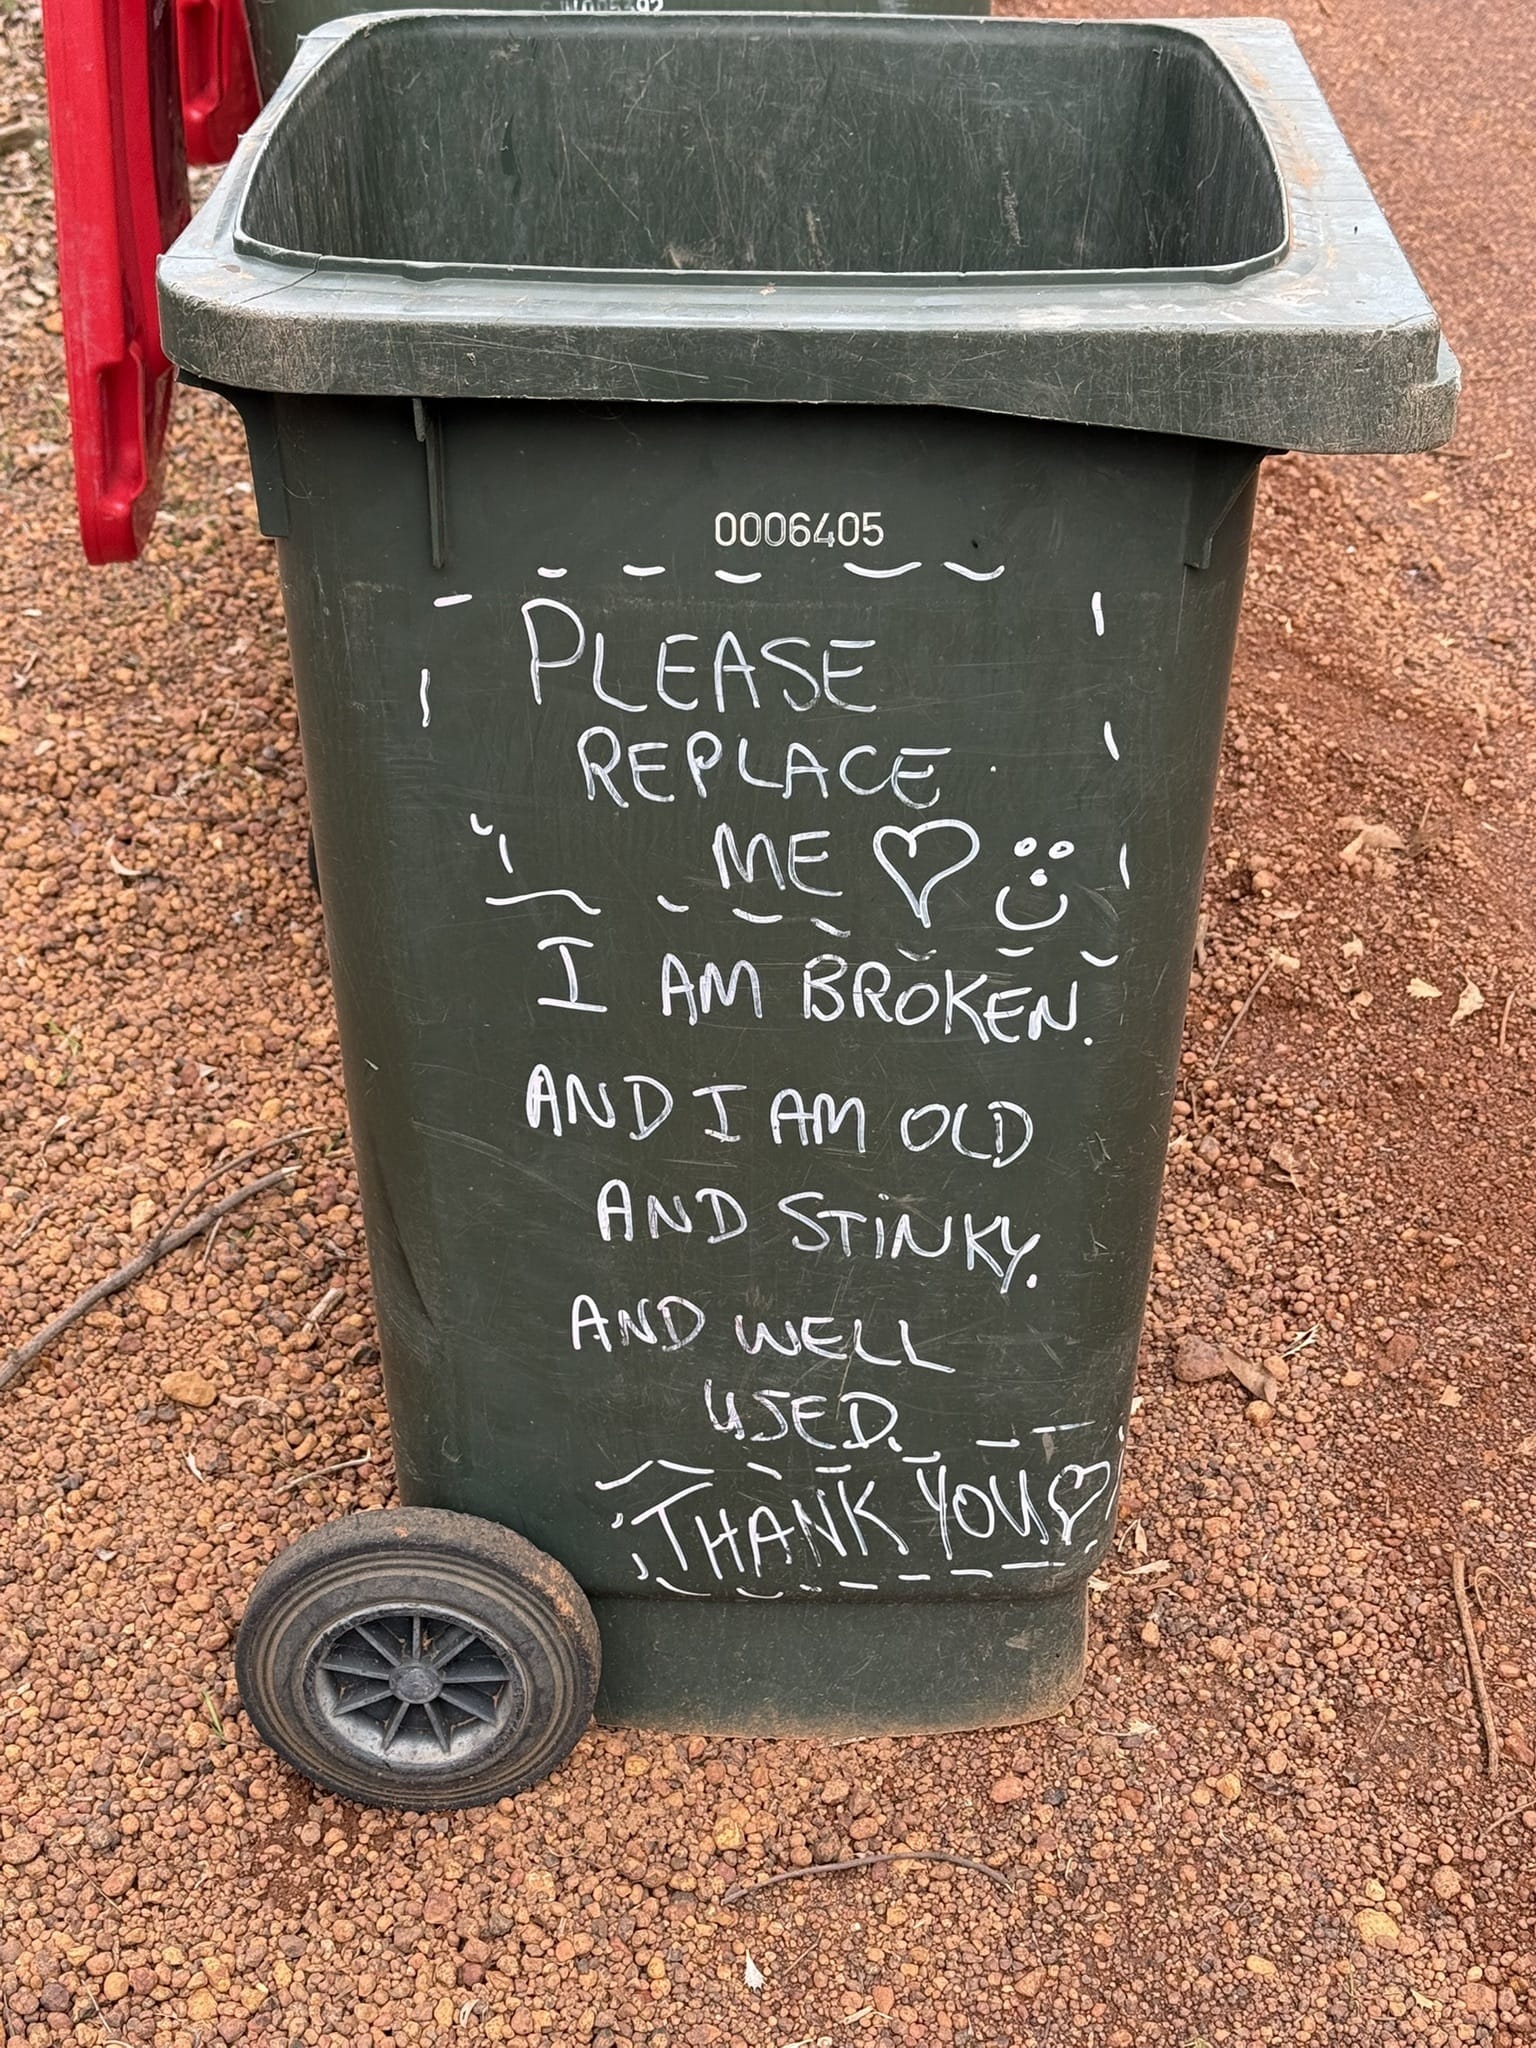 0006405
PLEASE
REPLACE
ME
I AM BROKEN.
AND I AM OLD
AND STINKY.
AND WELL
USED.
THANK YOU